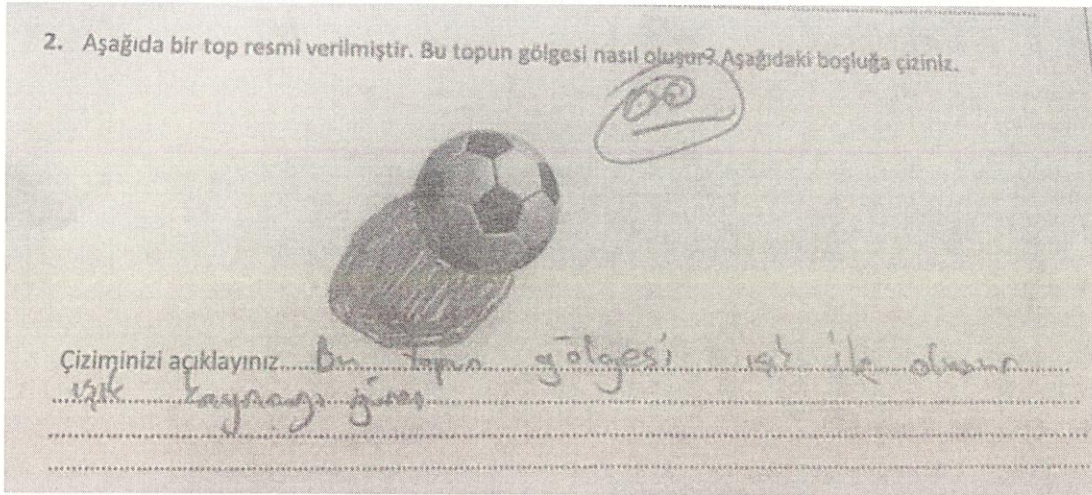 2. Aşağıda bir top resmi verilmiştir. Bu topun gölgesi nasıl oluşur? Aşağıdaki boşluğa çiziniz.
Çiziminizi açıklayınız.....Bu topun gölgesi ışık ile oluşur
ışık kaynağı güneş